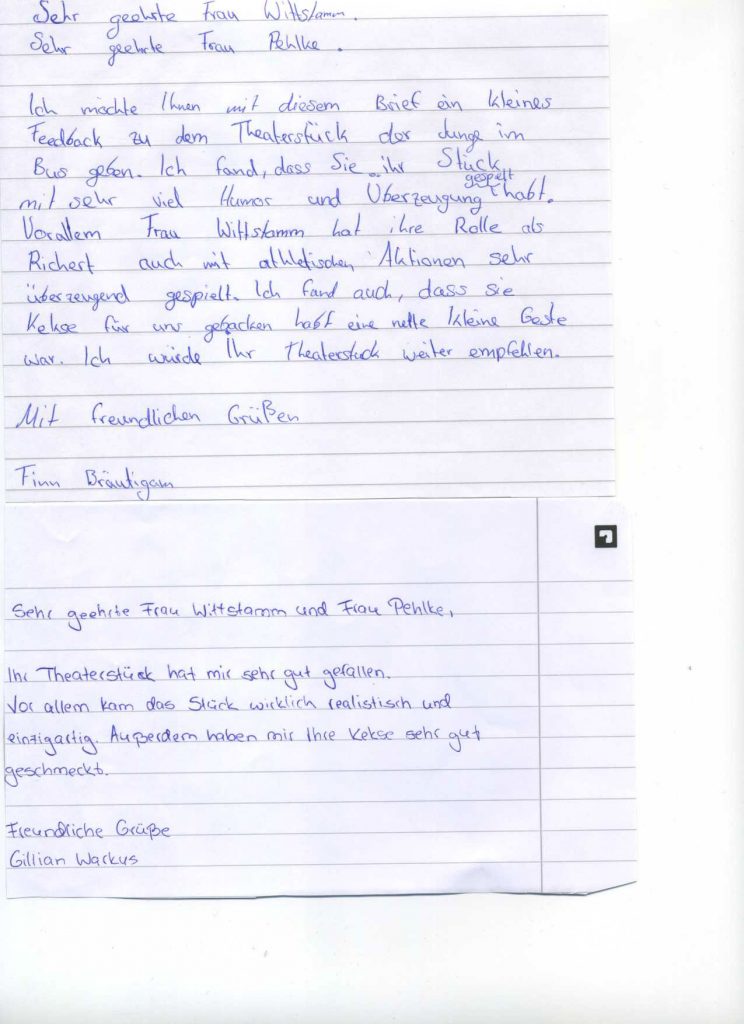 Sehr geehrte Frau Wittstamm.
Sehr geehrte Frau Pehlke.
Ich möchte Ihnen mit diesem Brief ein kleines
Feedback zu dem Theaterstück der Junge im
Bus geben. Ich fand, dass Sie ihr Stück
mit sehr viel Humor und Überzeugung gespielt habt.
Vorallem Frau Wittstamm hat ihre Rolle als
Richert auch mit athletischen Aktionen sehr
überzeugend gespielt. Ich fand auch, dass sie
Kekse für uns gebacken habt eine nette kleine Geste
war. Ich würde Ihr Theaterstück weiter empfehlen.
Mit freundlichen Grüßen
Finn Bräutigam
Sehr geehrte Frau Wittstamm und Frau Pehlke,
Ihr Theaterstück hat mir sehr gut gefallen.
Vor allem kam das Stück wirklich realistisch und
einzigartig. Außerdem haben mir Ihre Kekse sehr gut
geschmeckt.
Freundliche Grüße
Gillian Warkus